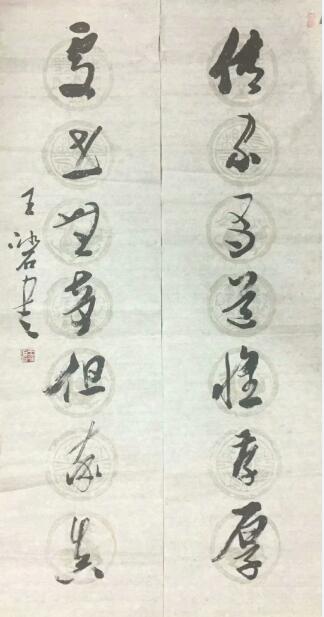 傳家有道惟存厚
處世無奇但率真
王